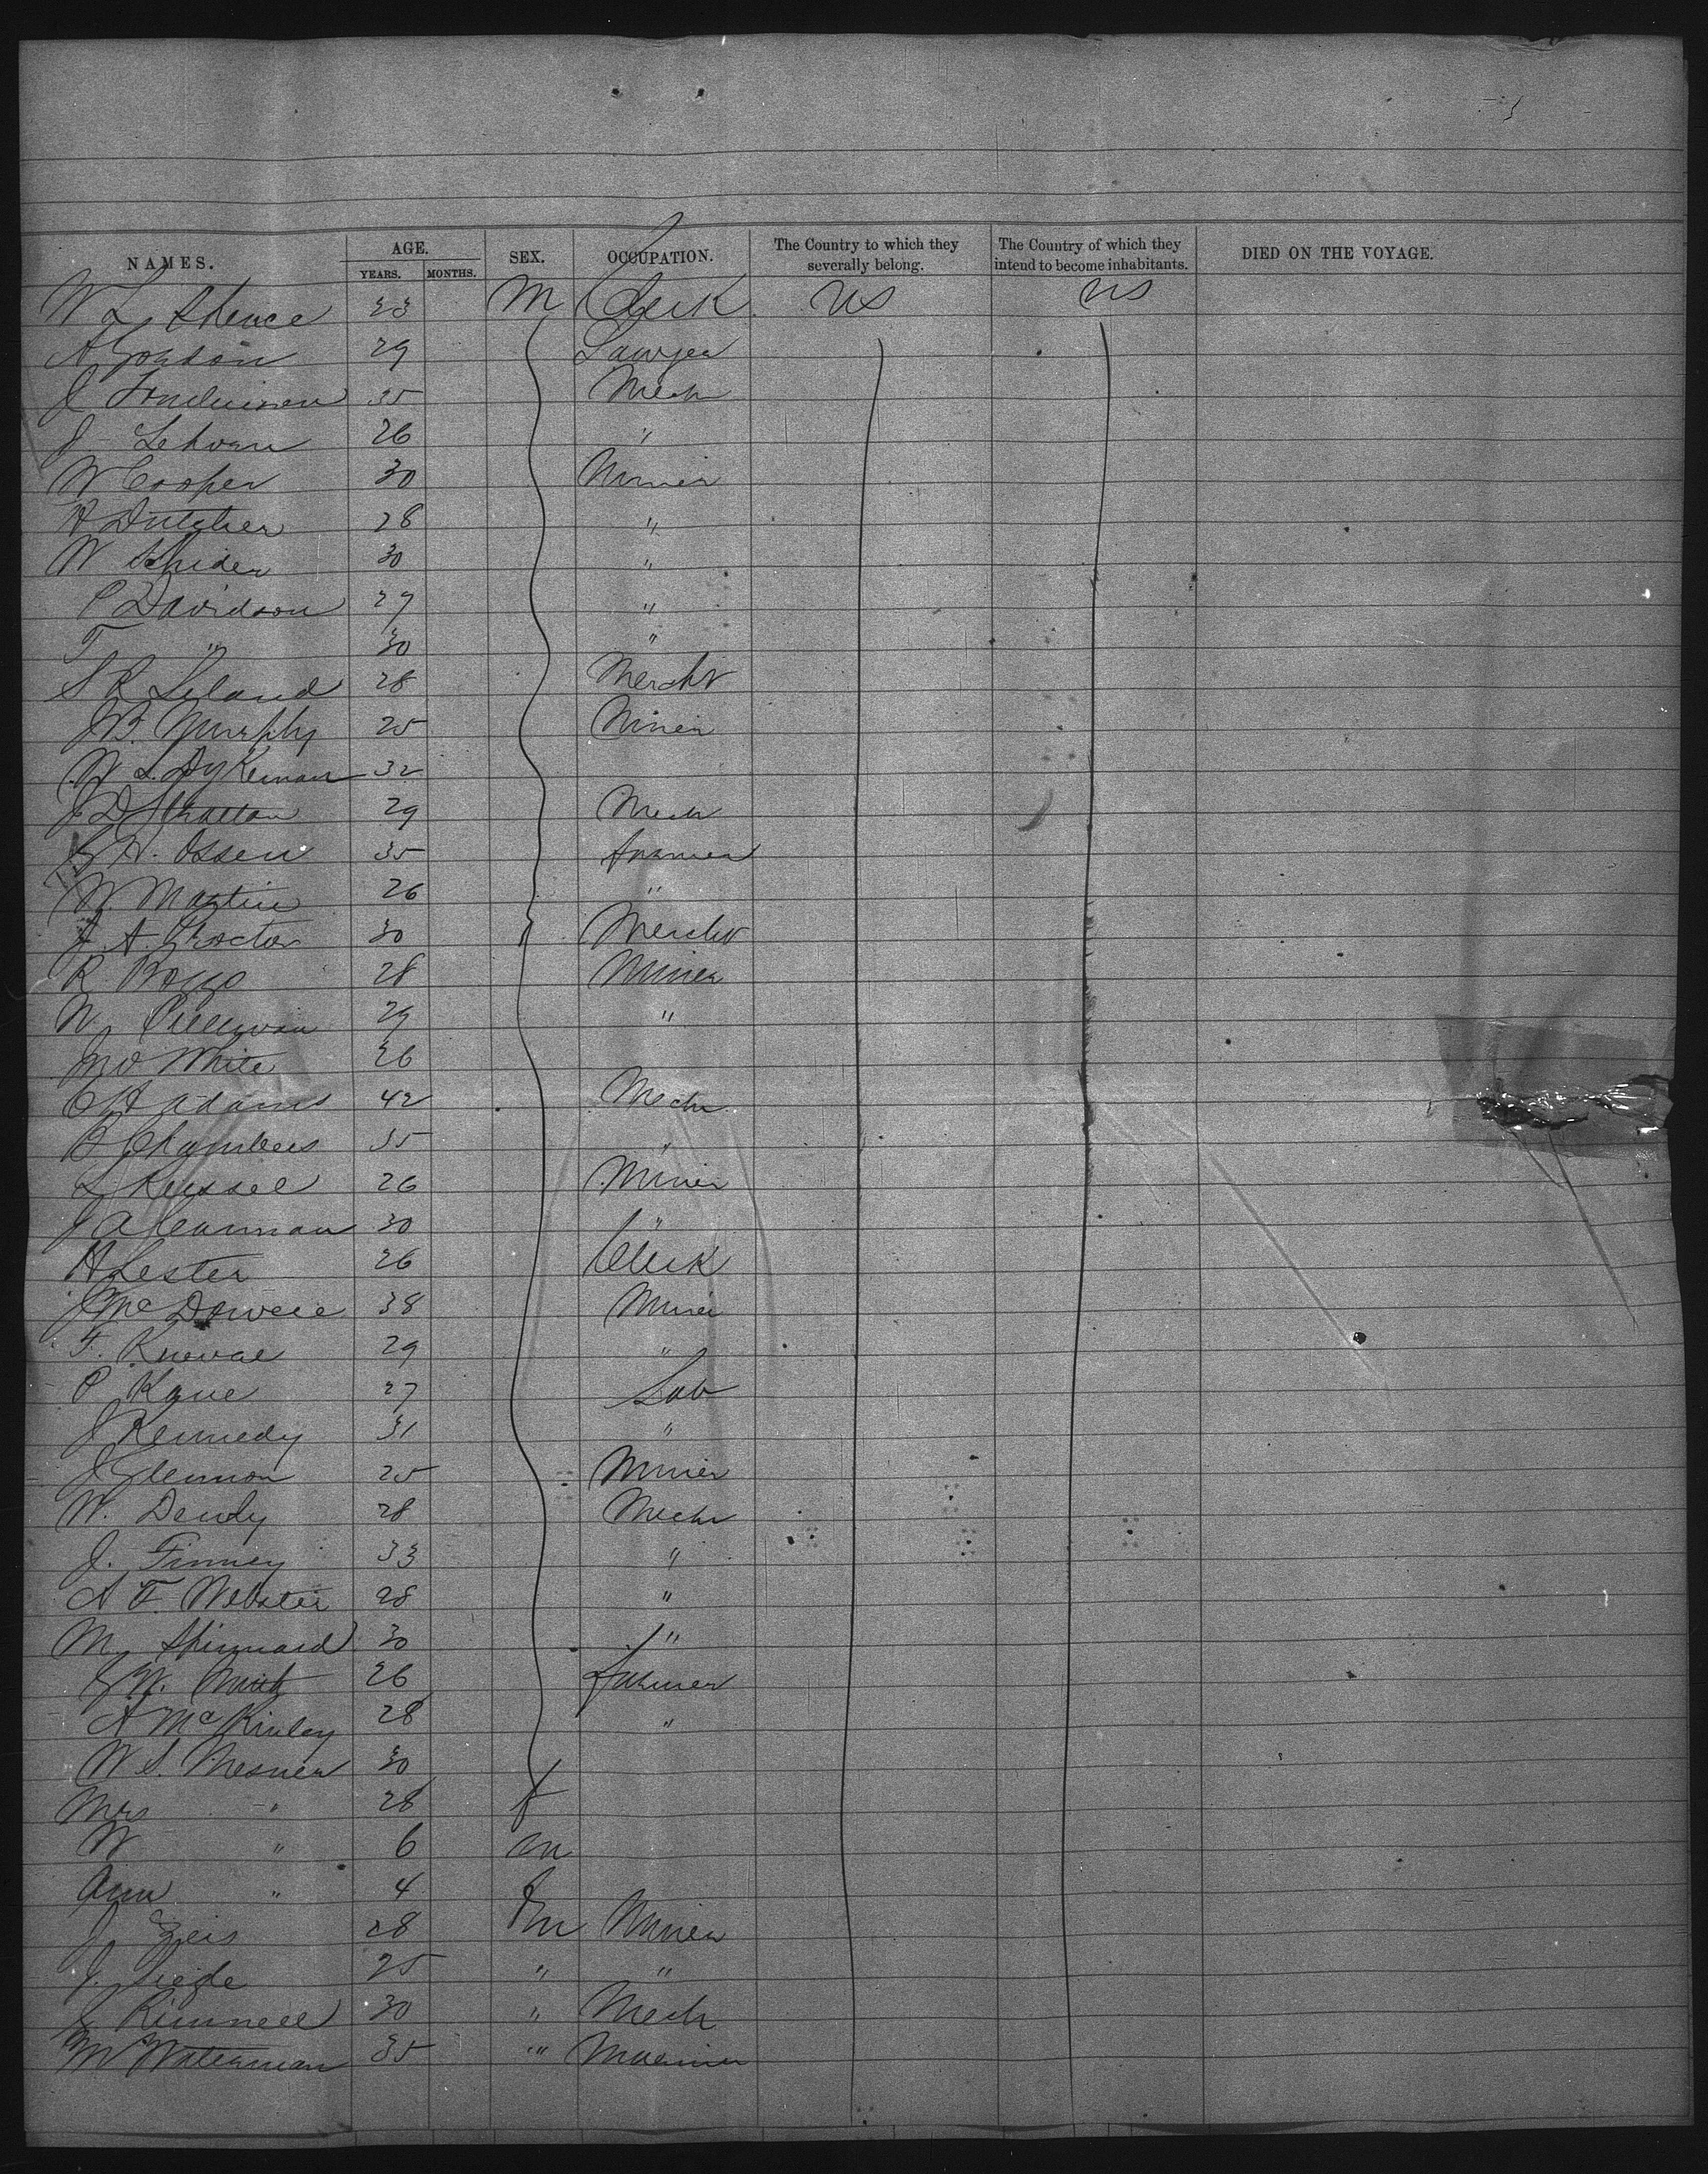 NAMES. AGE. YEARS. MONTHS. SEX. OCCUPATION. The Country to which they severally belong. The Country of which they intend to become inhabitants. DIED ON THE VOYAGE.
W L Spence 23 M Clerk US US
A Gordon 29 Lawyer
J Tomlinson 35 Mech
J 26 "
W Cooper 30 Miner
A Dutcher 28 "
W Shider 30 "
P Davidson 27 "
T " 30 "
S R Leland 28 Mercht
J B. Murphy 25 Miner
W L. Dykeman 32
J D Stratton 29 Mech
G H. Ossen 35 farmer
W Martin 26 "
J A. Proctor 30 Mercht
R. Boggs 28 Miner
N. 29 "
Jno White 26
C H Adams 42 Mech
B Chambers 35 "
L Russel 26 Miner
J A 30 "
H Lester 26 Clerk
J McDowell 38 Miner
F. 29 "
P Kane 27 Lab
J Kennedy 31 "
J Glennon 25 Miner
W. Dendy 28 Mech
J. Finney 33 "
A F. Webster 28 "
M. Skinnard 30 "
G W. 26 farmer
A McKinley 28 "
W S. Mesner 30
Mrs " 28 f
W " 6 m
Ann " 4 f
J Zeis 28 m Miner
J. Siegle 25 " "
G Kimmell 30 " Mech
M Waterman 35 " Mariner